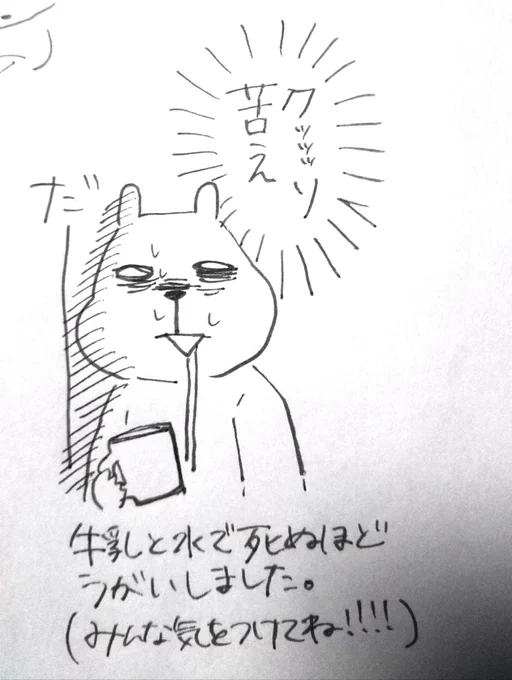 クッッッソ
苦え
だ゛
牛乳と水で死ぬほど
うがいしました。
(みんな気をつけてね!!!!)